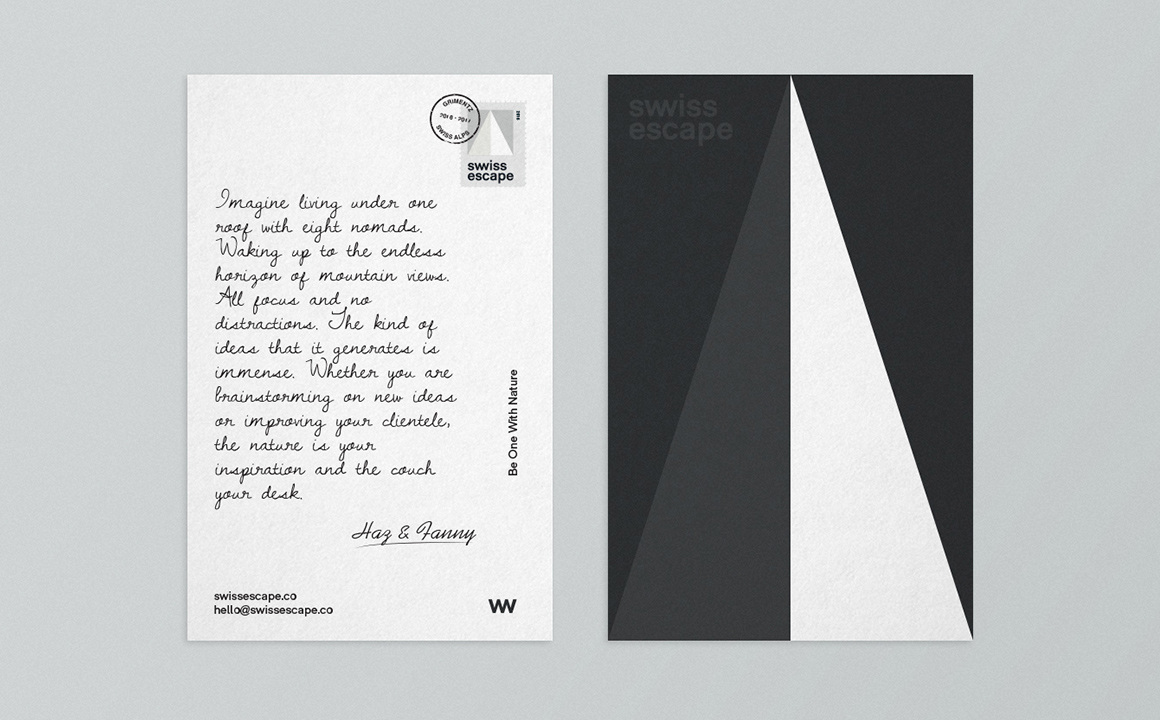 GRIMENTZ
2016 - 2017
SWISS ALPS
swiss
escape
Imagine living under one
roof with eight nomads.
Waking up to the endless
horizon of mountain views.
All focus and no
distractions. The kind of
ideas that it generates is
immense. Whether you are
brainstorming on new ideas
or improving your clientele,
the nature is your
inspiration and the couch
your desk.
Haz & Fanny
Be One With Nature
swissescape.co
hello@swissescape.co
W
swiss
escape